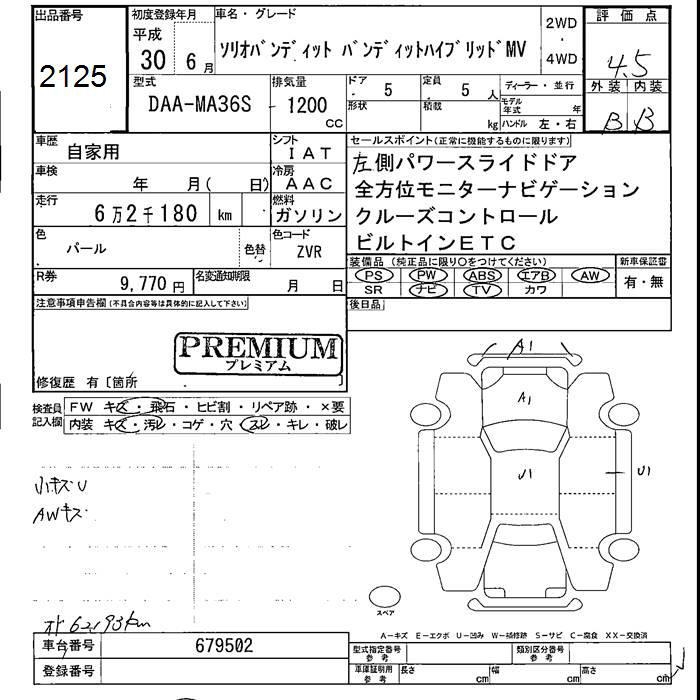 出品番号
2125
初度登録年月
平成
30 6月
車名・グレード
ソリオバンディット バンディットハイブリッドMV
2WD
・
4WD
評価点
4.5
外装 内装
B B
型式
DAA-MA36S
排気量
1200
CC
ドア
5
定員
5 人
形状
積載
kg
ディーラー・並行
モデル
年式 年
ハンドル 左・右
車歴
自家用
シフト
IAT
車検
年 月( 日)
冷房
AAC
走行
6万2千180 km
燃料
ガソリン
色
パール
色替
色コード
ZVR
R券
9,770 円
名変通知期限
月 日
セールスポイント(正常に機能するものに限ります)
左側パワースライドドア
全方位モニターナビゲーション
クルーズコントロール
ビルトインETC
装備品 (純正品に限り○をつけてください)
PS PW ABS エアB AW
SR ナビ TV カワ
新車保証書
有・無
後日品
注意事項申告欄(不具合内容等は具体的に記入して下さい)
PREMIUM
プレミアム
修復歴 有〔箇所
〕
検査員
記入欄
FW キズ・飛石・ヒビ割・リペア跡・×要
内装 キズ・汚レ・コゲ・穴・スレ・キレ・破レ
小キズU
AWキズ
A1
A1
U1
U1
スペア
オド 62,193km
A-キズ E-エクボ U-凹み W-補修跡 S-サビ C-腐食 XX-交換済
車台番号
679502
登録番号
型式指定番号
参考
類別区分番号
参考
車庫証明用
参考
長さ cm
幅 cm
高さ cm